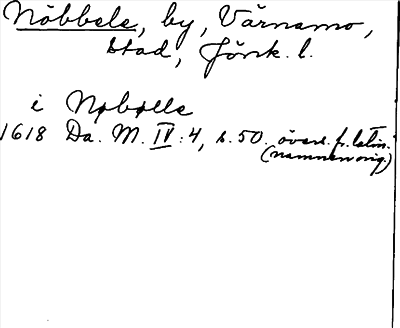 Nöbbele, by, Värnamo,
stad, Jönk. l.
i Nøbølle
1618 Da. M. IV:4, s. 50. övers. fr. latin.
(namnen orig.)